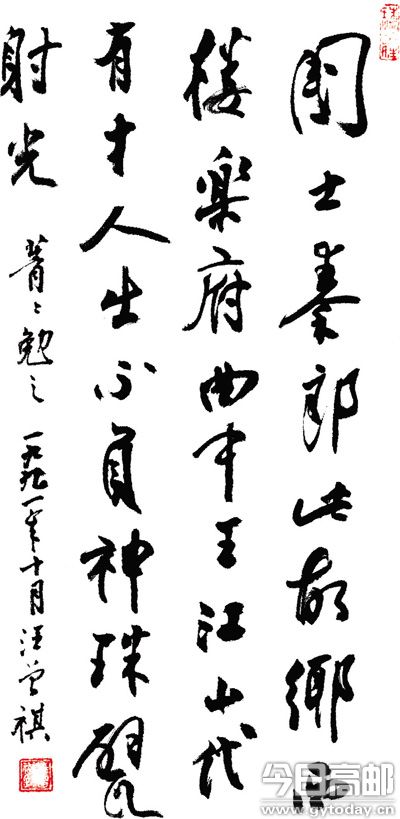 國士秦郎此故鄉西
樓樂府曲中王江山代
有才人出不負神珠甓
射光 菁〻勉之 一九九一年十月汪曾祺
今日高邮
www.gytoday.cn